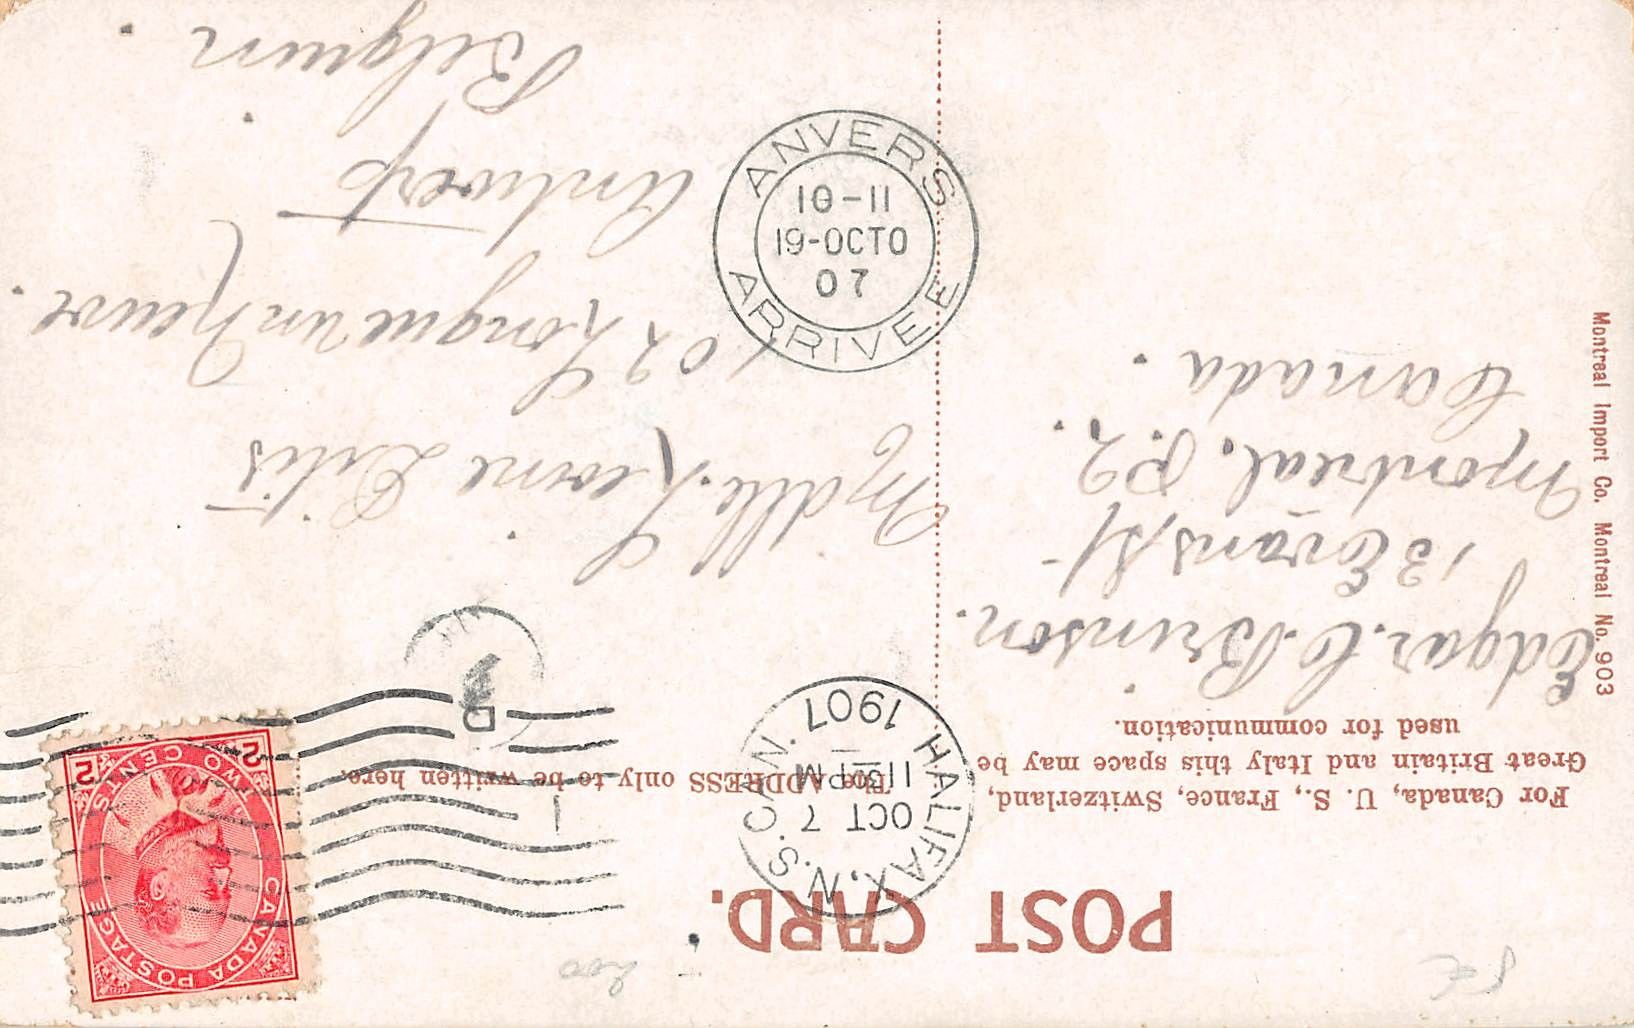 POST CARD.
For Canada, U. S., France, Switzerland,
Great Britain and Italy this space may be
used for communication.
The ADDRESS only to be written here.
Edgar. C. Brinson.
13 Evans St
Montreal. P.Q.
Canada.
Mdlle. Leonie
102 Longue
Antwerp
Belgium.
HALIFAX, N.S. CAN.
OCT 7
11 30 PM
1907
D
1
CANADA POSTAGE
TWO CENTS
2 2
ANVERS
10-11
19-OCTO
07
ARRIVEE
Montreal Import Co. Montreal No. 903
200